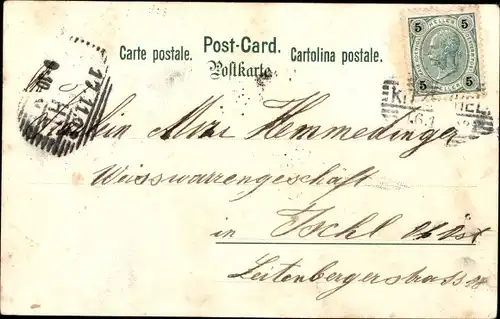 Carte postale. Post-Card. Cartolina postale.
Postkarte
5 HELLER 5
5 5
KITZ HEL
17.11
Fräulein Mizi Hemmedinger
Weisswarrengeschäft
in Ischl
Leitenbergerstrasse